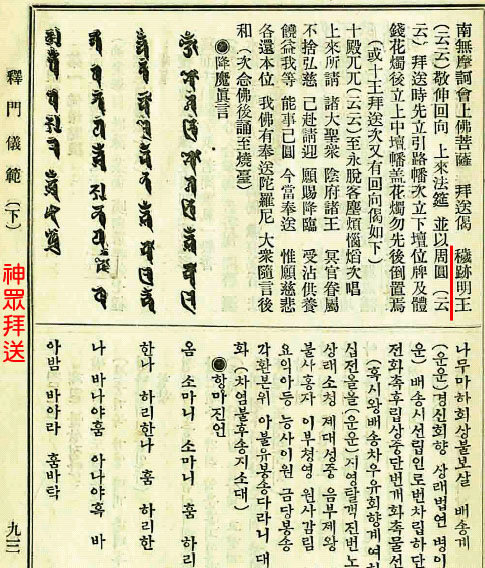 南無摩訶會上佛菩薩　拜送偈　穢跡明王
(云云) 敬伸回向　上來法筵　並以周圓 (云
云) 拜送時先立引路幡次立下壇位牌及體
錢花燭後立上中壇幡盖花燭勿先後倒置焉
(或十王拜送次又有回向偈如下)
十殿兀兀(云云)至永脫客塵煩惱焰次唱
上來所請　諸大聖衆　陰府諸王　冥官眷屬
不捨弘慈　已赴請迎　願賜降臨　受沾供養
饒益我等　能事已圓　今當奉送　惟願慈悲
各還本位　我佛有奉送陀羅尼　大衆隨言後
和 (次念佛後誦至燒臺)
●降魔眞言
나무마하회상불보살　배송게
(운운) 경신회향　상래법연　병이
운) 배송시선립인로번차립하단
전화촉후립상중단번개화촉물선
(혹시왕배송차우유회향게여하
십전올올(운운)지영탈객진번노
상래소청　제대성중　음부제왕
불사홍자　이부청영　원사감림
요익아등　능사이원　금당봉송
각환본위　아불유봉송다라니　대
화 (차염불후송지소대)
●항마진언
옴　소마니　소마니　훔　하리
한나　하리한나　훔　하리한
나　바나야훔　아나야혹　바
아밤　바아라　훔바탁
釋門儀範(下)
神眾拜送
九三